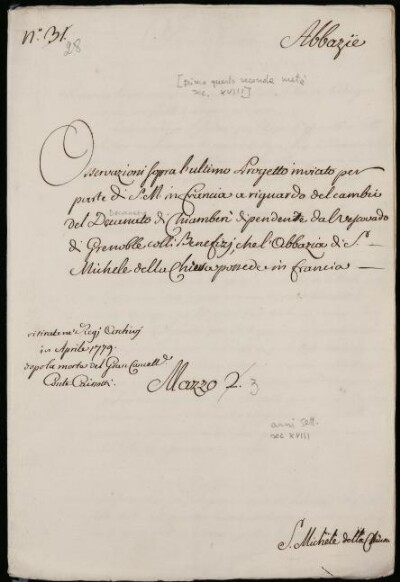 N.° 31.
28
Abbazie
[primo quarto seconda metà
sec. XVIII]
Osservazioni sopra l'ultimo Progetto inviato per
parte di S. M. in Francia a riguardo del cambio
del Decanato di Chiamberì dipendente dal Vescovado
di Grenoble colli Benefizj, che l'Abbazia di S.
Michele della Chiusa possede in Francia
visitate ne' Regj Archivj
in Aprile 1779.
dopo la morte del Gran Cancell.e
Conte
Mazzo 2. 3
anni sett.
sec XVIII
S. Michele della Chiusa